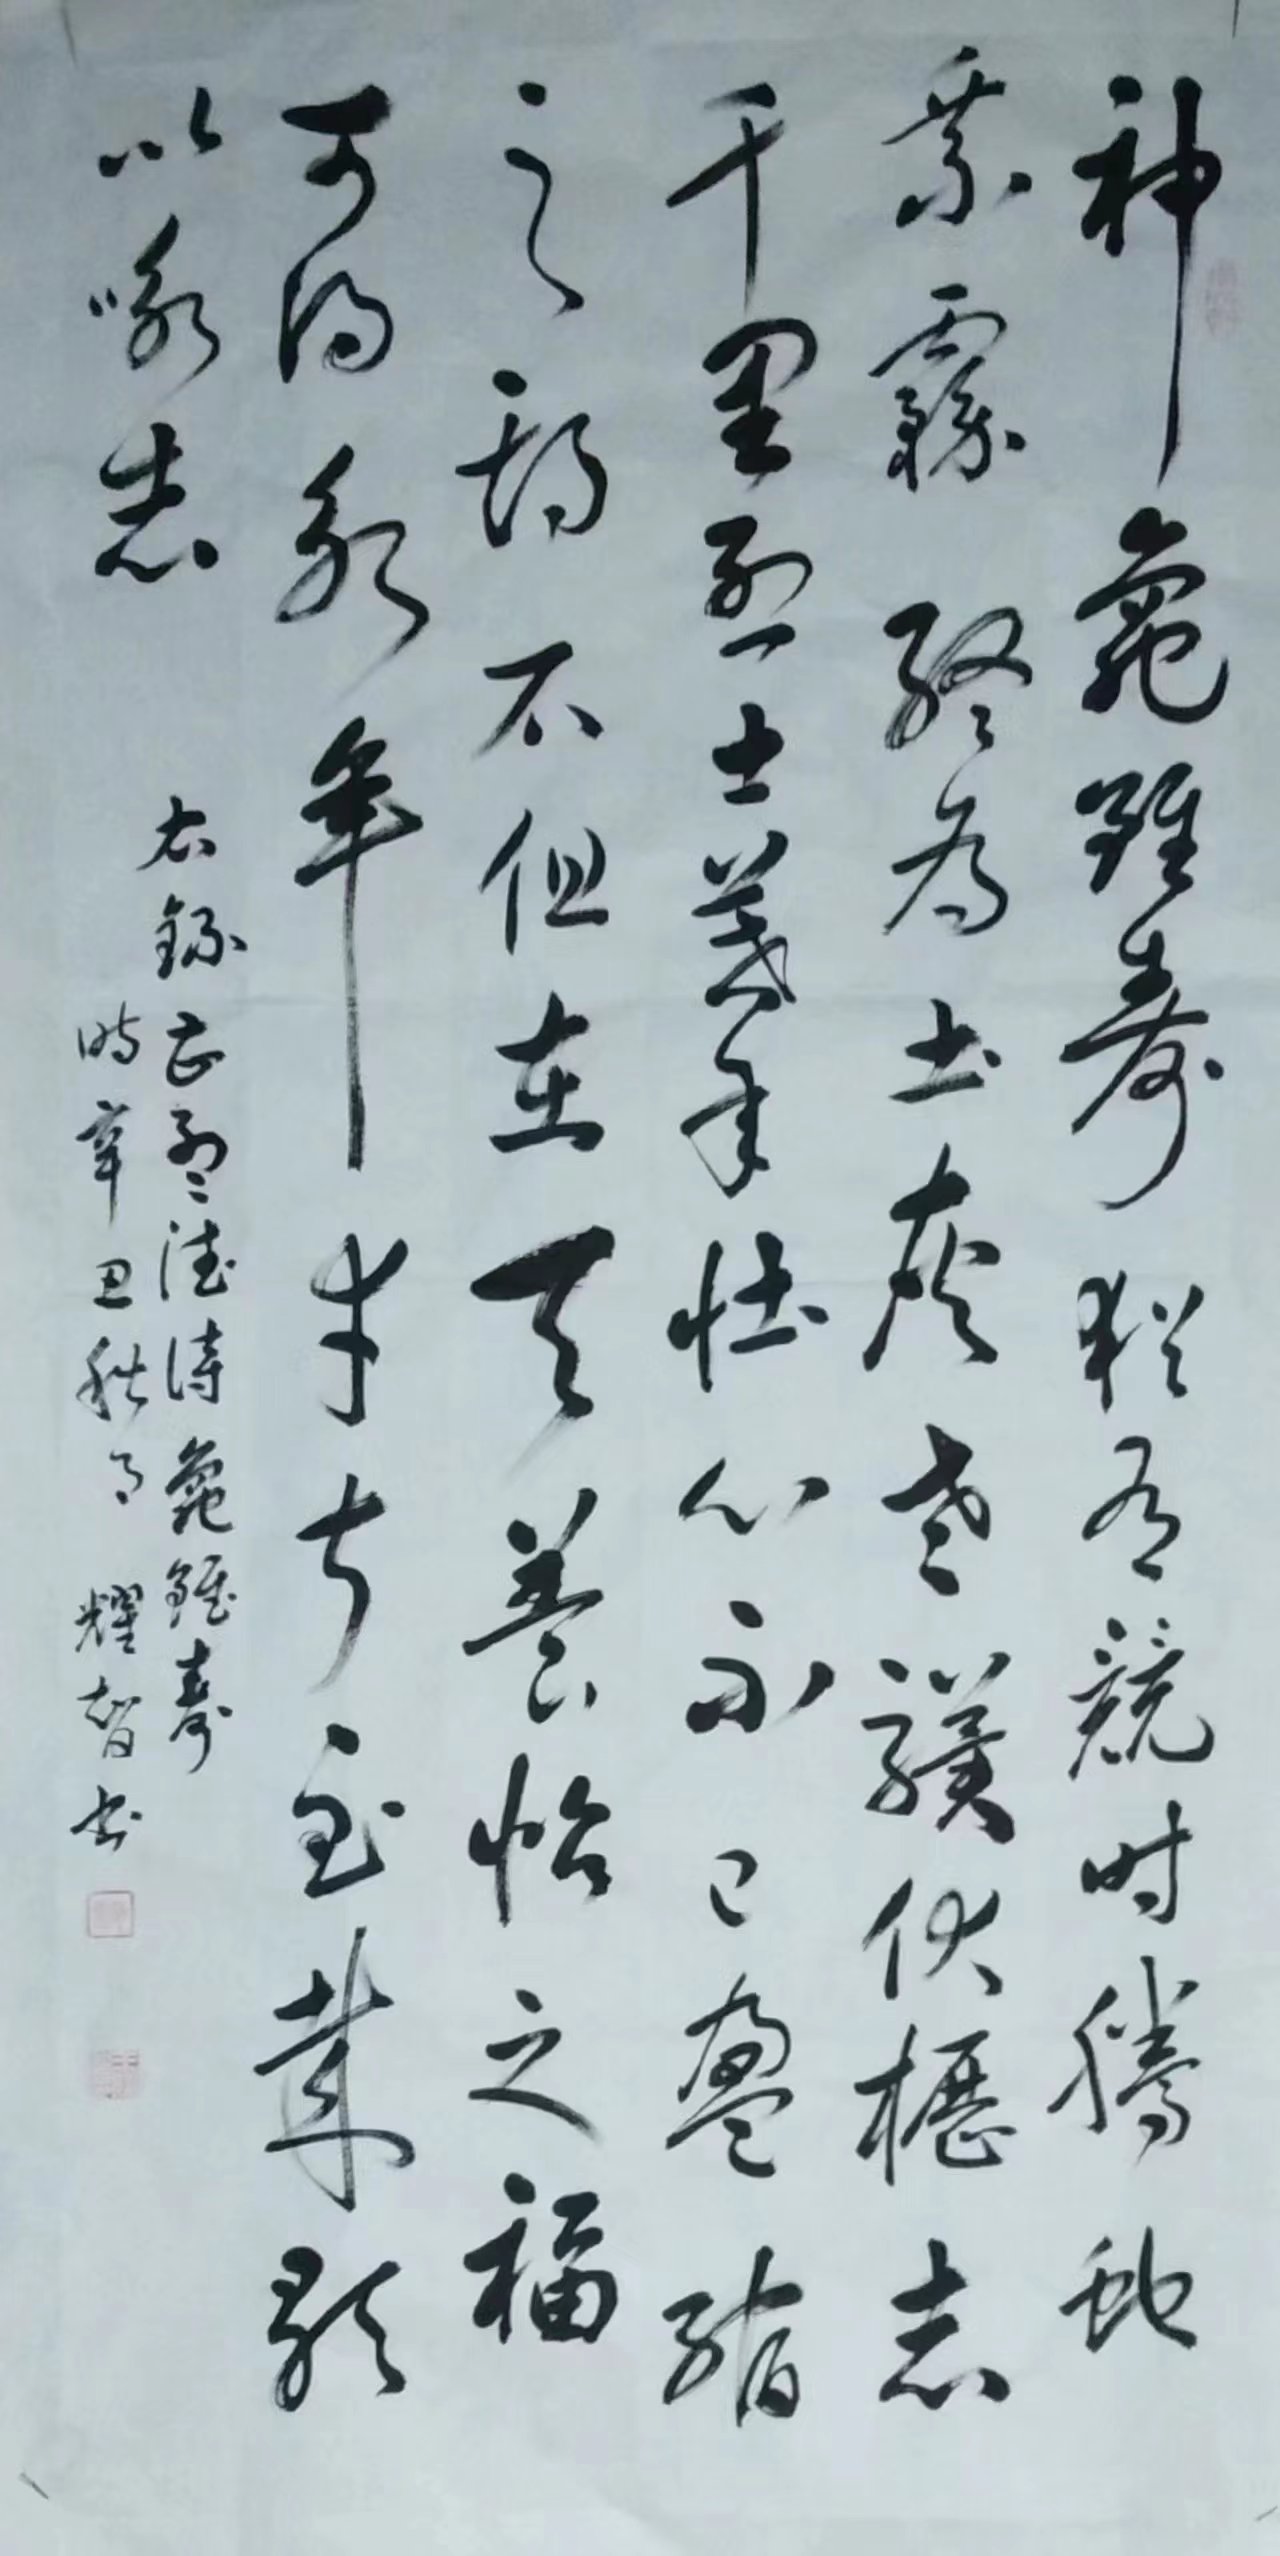 神龜雖壽猶有競时騰蛇
乘霧終为土灰老驥伏櫪志
千里烈士暮年壯心不已盈縮
之期不但在天養怡之福
可得永年幸甚至哉歌
以咏志
右錄曹孟德詩龜雖壽
時辛丑秋月 耀智書